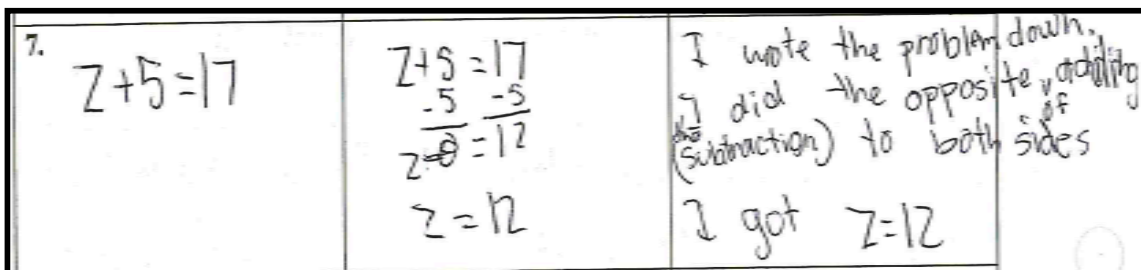 7.
Z+5=17
Z+5=17
-5 -5
z+0=12
z=12
I wrote the problem down.
I did the opposite of adding
(subtraction) to both sides
I got Z=12